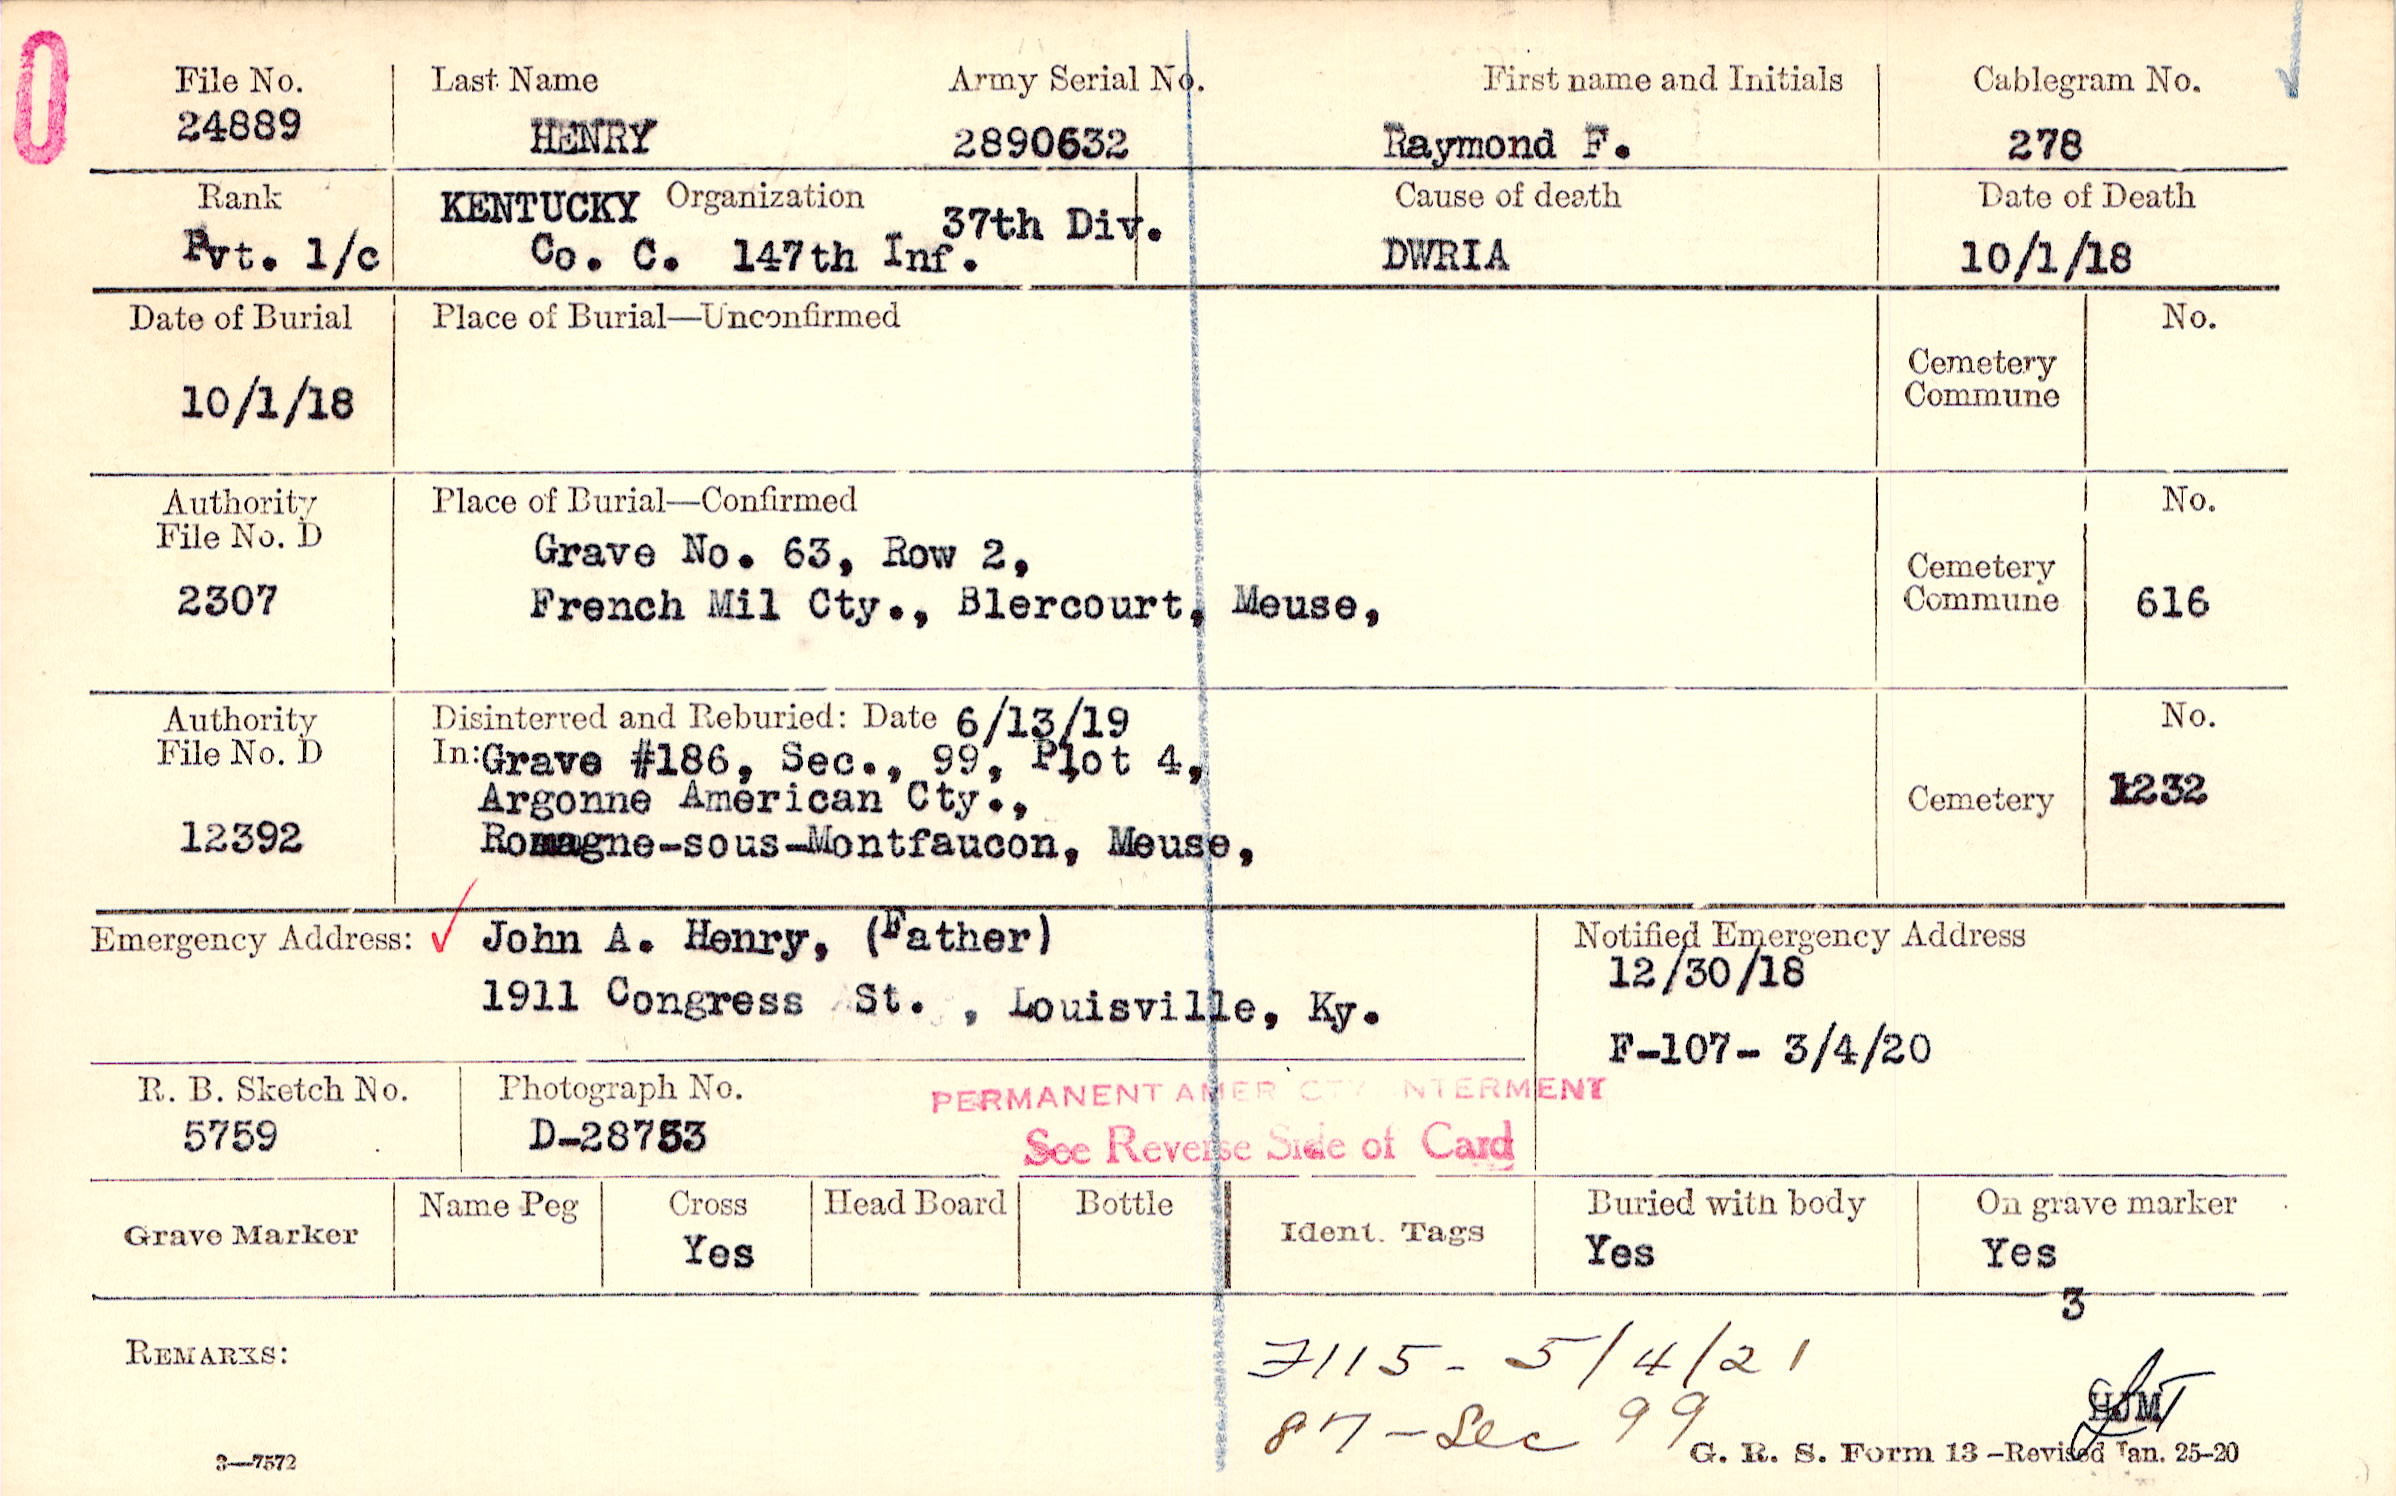 File No. Last Name Army Serial No. First name and Initials Cablegram No.
24889 HENRY 2890632 Raymond F. 278
Rank KENTUCKY Organization 37th Div. Cause of death Date of Death
Pvt. 1/c Co. C. 147th Inf. DWRIA 10/1/18
Date of Burial Place of Burial—Unconfirmed No.
10/1/18 Cemetery
Commune
Authority Place of Burial—Confirmed No.
File No. D Grave No. 63, Row 2, Cemetery
2307 French Mil Cty., Blercourt, Meuse, Commune 616
Authority Disinterred and Reburied: Date 6/13/19 No.
File No. D In: Grave #186, Sec., 99, Plot 4,
Argonne American Cty., Cemetery 1232
12392 Romagne-sous-Montfaucon, Meuse,
Emergency Address: John A. Henry, (Father) Notified Emergency Address
12/30/18
1911 Congress St. , Louisville, Ky.
F-107- 3/4/20
R. B. Sketch No. Photograph No. PERMANENT AMER CTY INTERMENT
5759 D-28753 See Reverse Side of Card
Name Peg Cross Head Board Bottle Buried with body On grave marker
Grave Marker Yes Ident. Tags Yes Yes
3
REMARKS: F115 - 5/4/21
87 - Sec 99 HJM
3—7572 G. R. S. Form 13 -Revised Jan. 25-20